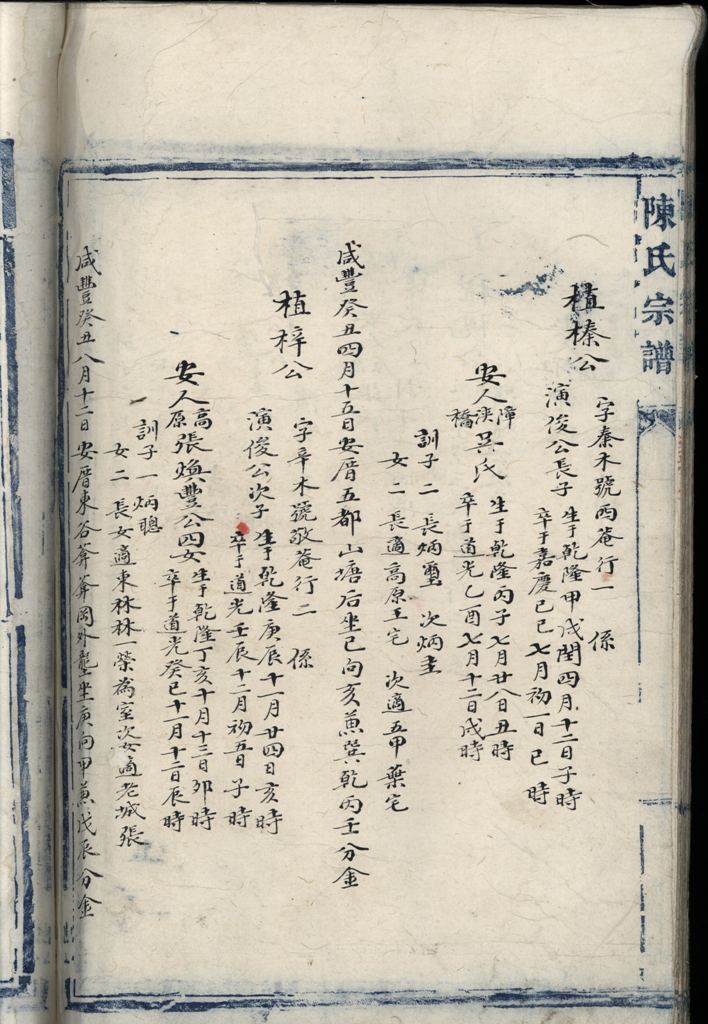 陳氏宗譜
植榛公
字秦木號西菴行一 係
演俊公長子
生于乾隆甲戌閏四月十二日子時
卒于嘉慶己巳七月初一日巳時
安人
障
淡
橋
吳氏
生于乾隆丙子七月廿八日丑時
卒于道光乙酉七月十二日戌時
訓子二 長炳璽 次炳圭
女二 長適高原王宅 次適五甲葉宅
咸豐癸丑四月十五日安厝五都山塘后坐巳向亥兼巽乾丙壬分金
植梓公
字辛木號敬菴行二 係
演俊公次子
生于乾隆庚辰十一月廿四日亥時
卒于道光壬辰十二月初五日子時
安人
高
原
張煥豐公四女
生于乾隆丁亥十月十三日卯時
卒于道光癸巳十一月十二日辰時
訓子一炳聰
女二 長女適東林林一榮為室次女適老城張
咸豐癸丑八月十二日安厝東谷葊葊岡外壟坐庚向甲兼戊辰分金